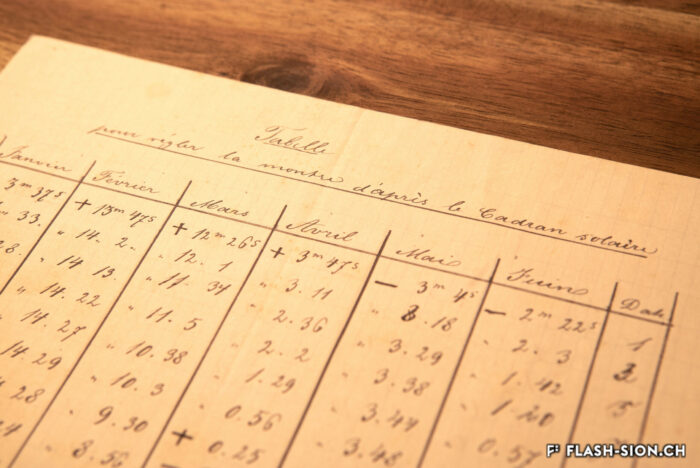 Tabelle
pour régler la montre d'après le Cadran solaire
Janvier Février Mars Avril Mai Juin Date
3m 37s + 13m 47s + 12m 26s + 3m 47s - 3m 4s - 2m 22s 1
33. " 14. 2. " 12. 1 " 3. 11 " 3. 18 " 2. 3 3
8. " 14 13 " 11. 34 " 2.36 " 3.29 " 1.42 5
" 14. 22 " 11. 5 " 2. 2 " 3.38 " 1.20
" 14. 27 " 10. 38 " 1. 29 " 3.44 " 0.57
14. 29 " 10. 3 " 0.56 " 3.48
14. 28 " 9. 30 + 0.25
14. 24 " 8. 56
FLASH-SION.CH